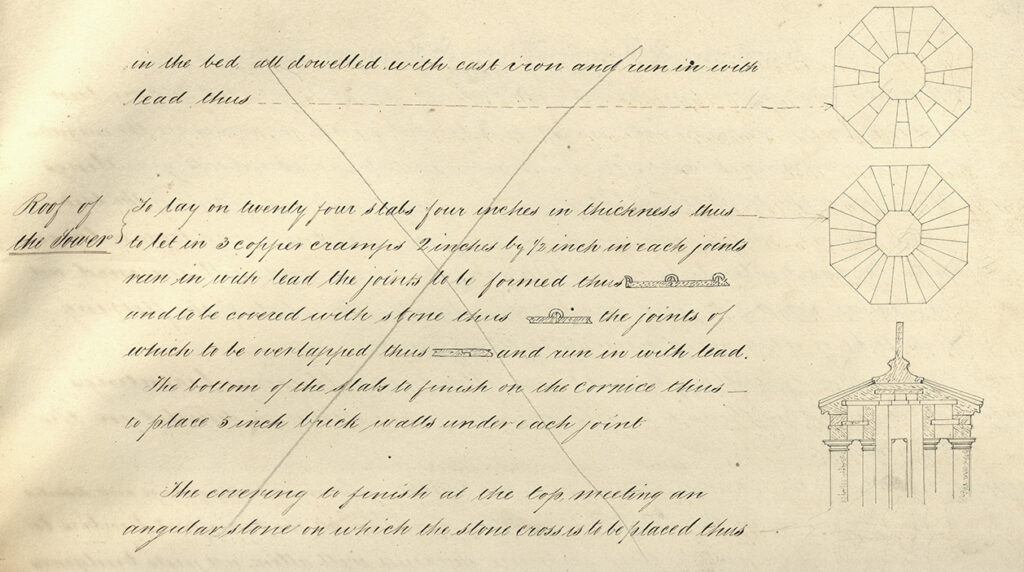 in the bed all dowelled with cast iron and run in with
lead thus
Roof of
the Tower
To lay on twenty four slabs four inches in thickness thus
to let in 3 copper cramps 2 inches by ½ inch in each joints
run in with lead the joints to be formed thus
and to be covered with stone thus the joints of
which to be overlapped thus and run in with lead.
The bottom of the slabs to finish on the cornice thus
to place 5 inch brick walls under each joint
The covering to finish at the top, meeting an
angular stone on which the stone cross is to be placed thus